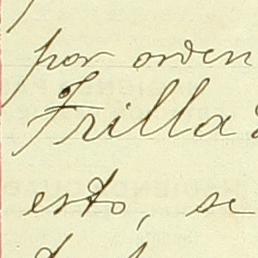 por orden
Frilla
esto, se